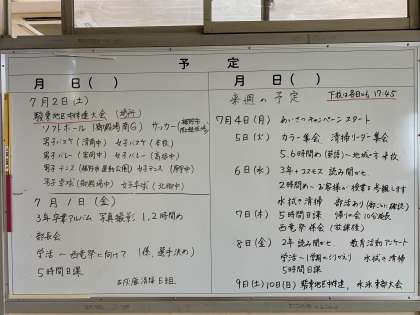 予定
月 日( )
7月2日(土)
駿東地区中体連大会 (場所)
ソフトボール(御殿場南G) サッカー(裾野市
男子バスケ(須南中) 女子バスケ(本校)
男子バレー(富岡中) 女子バレー(高根中)
男子テニス(裾野市運動公園) 女子テニス(原里中)
男子卓球(御殿場中) 女子卓球(北郷中)
7月1日(金)
3年卒業アルバム写真撮影 1,2時間め
部長会
学活〜西竜祭に向けて (係、選手決め)
5時間日課
月 日( )
来週の予定
下校は各日とも 17:45
7月4日(月) あいさつキャンペーンスタート
5日(火) カラー集会 清掃リーダー集会
5.6時間め(英語)〜地域す本校
6日(水) 3年 コスモス 読み聞かせ
2時間め〜お客様が授業を参観します
水拭き清掃 部活あり
7日(木) 5時間日課 帰りの会10分延長
西竜祭集会(放課後)
8日(金) 2年読み聞かせ 教育活動アンケート
学活〜1学期のふりかえり 水拭き清掃
5時間日課
9日(土)10日(日) 駿東地区中体連、水泳東部大会